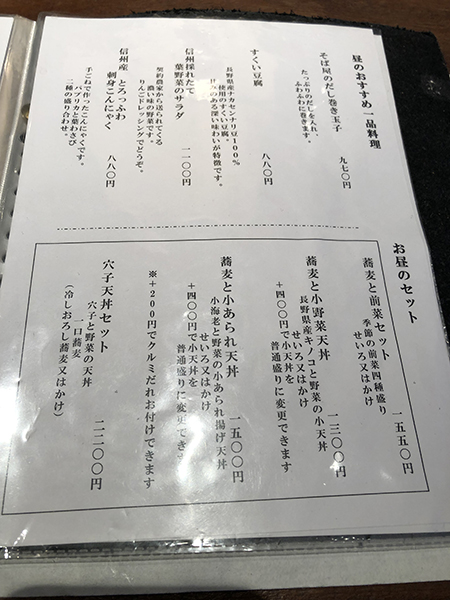 昼のおすすめ一品料理
そば屋のだし巻き玉子　九七〇円
たっぷりのだしを入れ、
ふわふわに巻きます。
すくい豆腐　八八〇円
長野県産ナカセンナリ豆100%
使用のすくい豆腐。
甘みのある深い味わいが特徴です。
信州採れたて
葉野菜のサラダ　一一〇〇円
契約農家から送られてくる
濃い味の野菜です。
りんごドレッシングでどうぞ。
信州産　とろっふわ
刺身こんにゃく　八八〇円
手こねで作ったこんにゃくです。
パプリカと葉わさび
二種の盛り合わせ。
お昼のセット
蕎麦と前菜セット　一五五〇円
季節の前菜四種盛り
せいろ又はかけ
蕎麦と小野菜天丼　一三〇〇円
長野県産キノコと野菜の小天丼
せいろ又はかけ
+四〇〇円で小天丼を
普通盛りに変更できます
蕎麦と小あられ天丼　一五〇〇円
小海老と野菜の小あられ揚げ天丼
せいろ又はかけ
+四〇〇円で小天丼を
普通盛りに変更できます
※+200円でクルミだれお付けできます
穴子天丼セット　二二〇〇円
穴子と野菜の天丼
一口蕎麦
（冷しおろし蕎麦又はかけ）